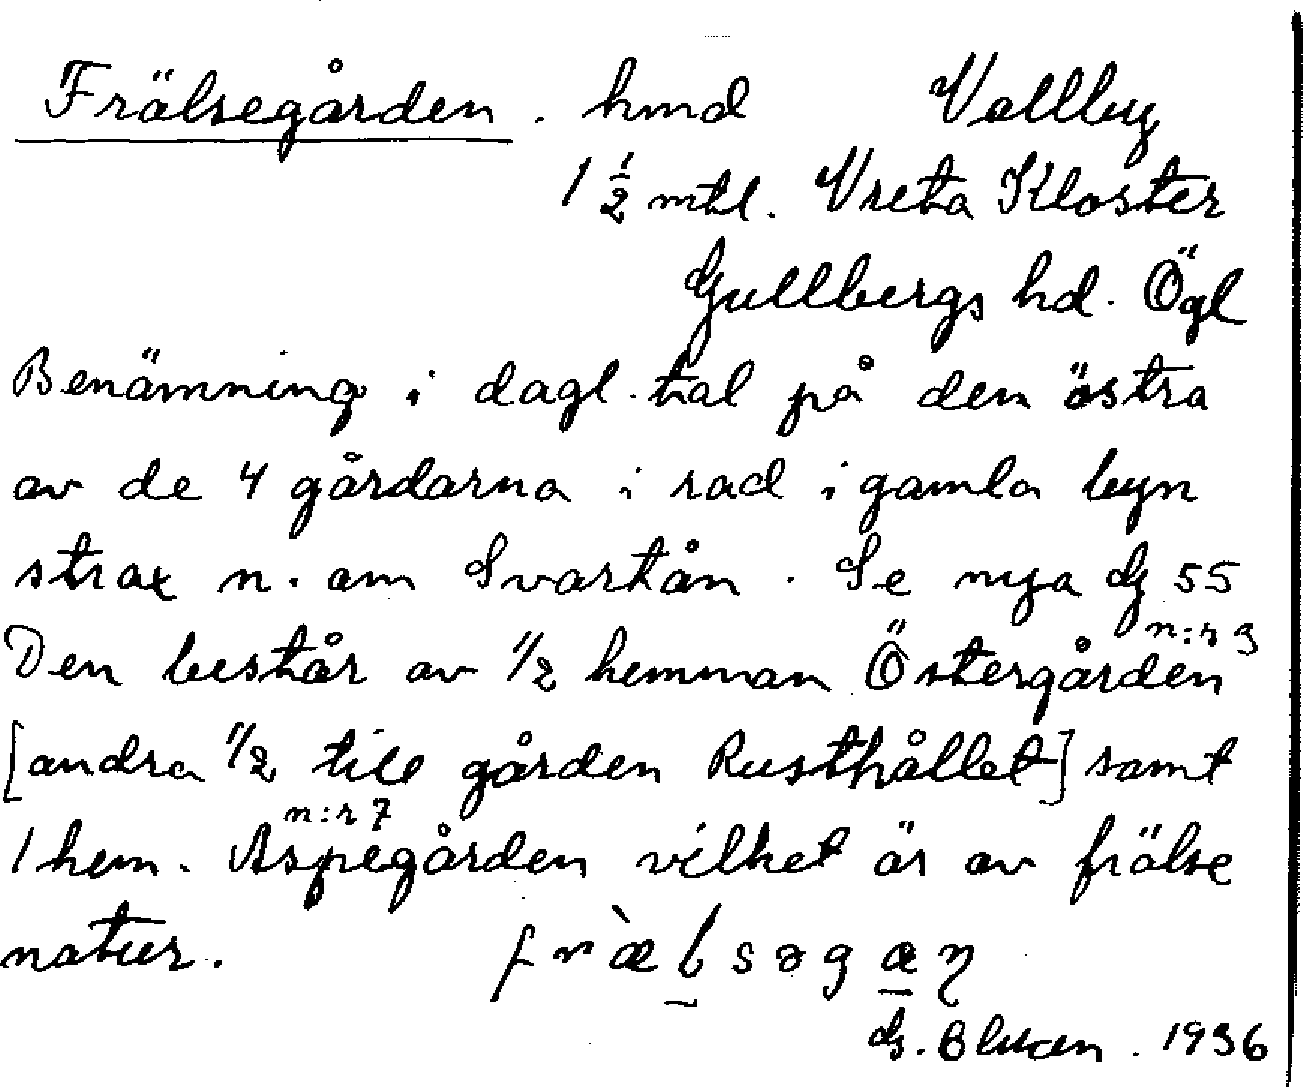 Frälsegården. hmd Vallby
1 ½ mtl. Vreta Kloster
Gullbergs hd. Ögl
Benämning i dagl. tal på den östra
av de 4 gårdarna i rad i gamla byn
strax n. om Svartån. Se nya G 55
Den består av 1/2 hemman Östergården n:r 3
[andra 1/2 till gården Rusthållet] samt
1 hem. Aspegården n:r 7 vilket är av frälse
natur.
1936